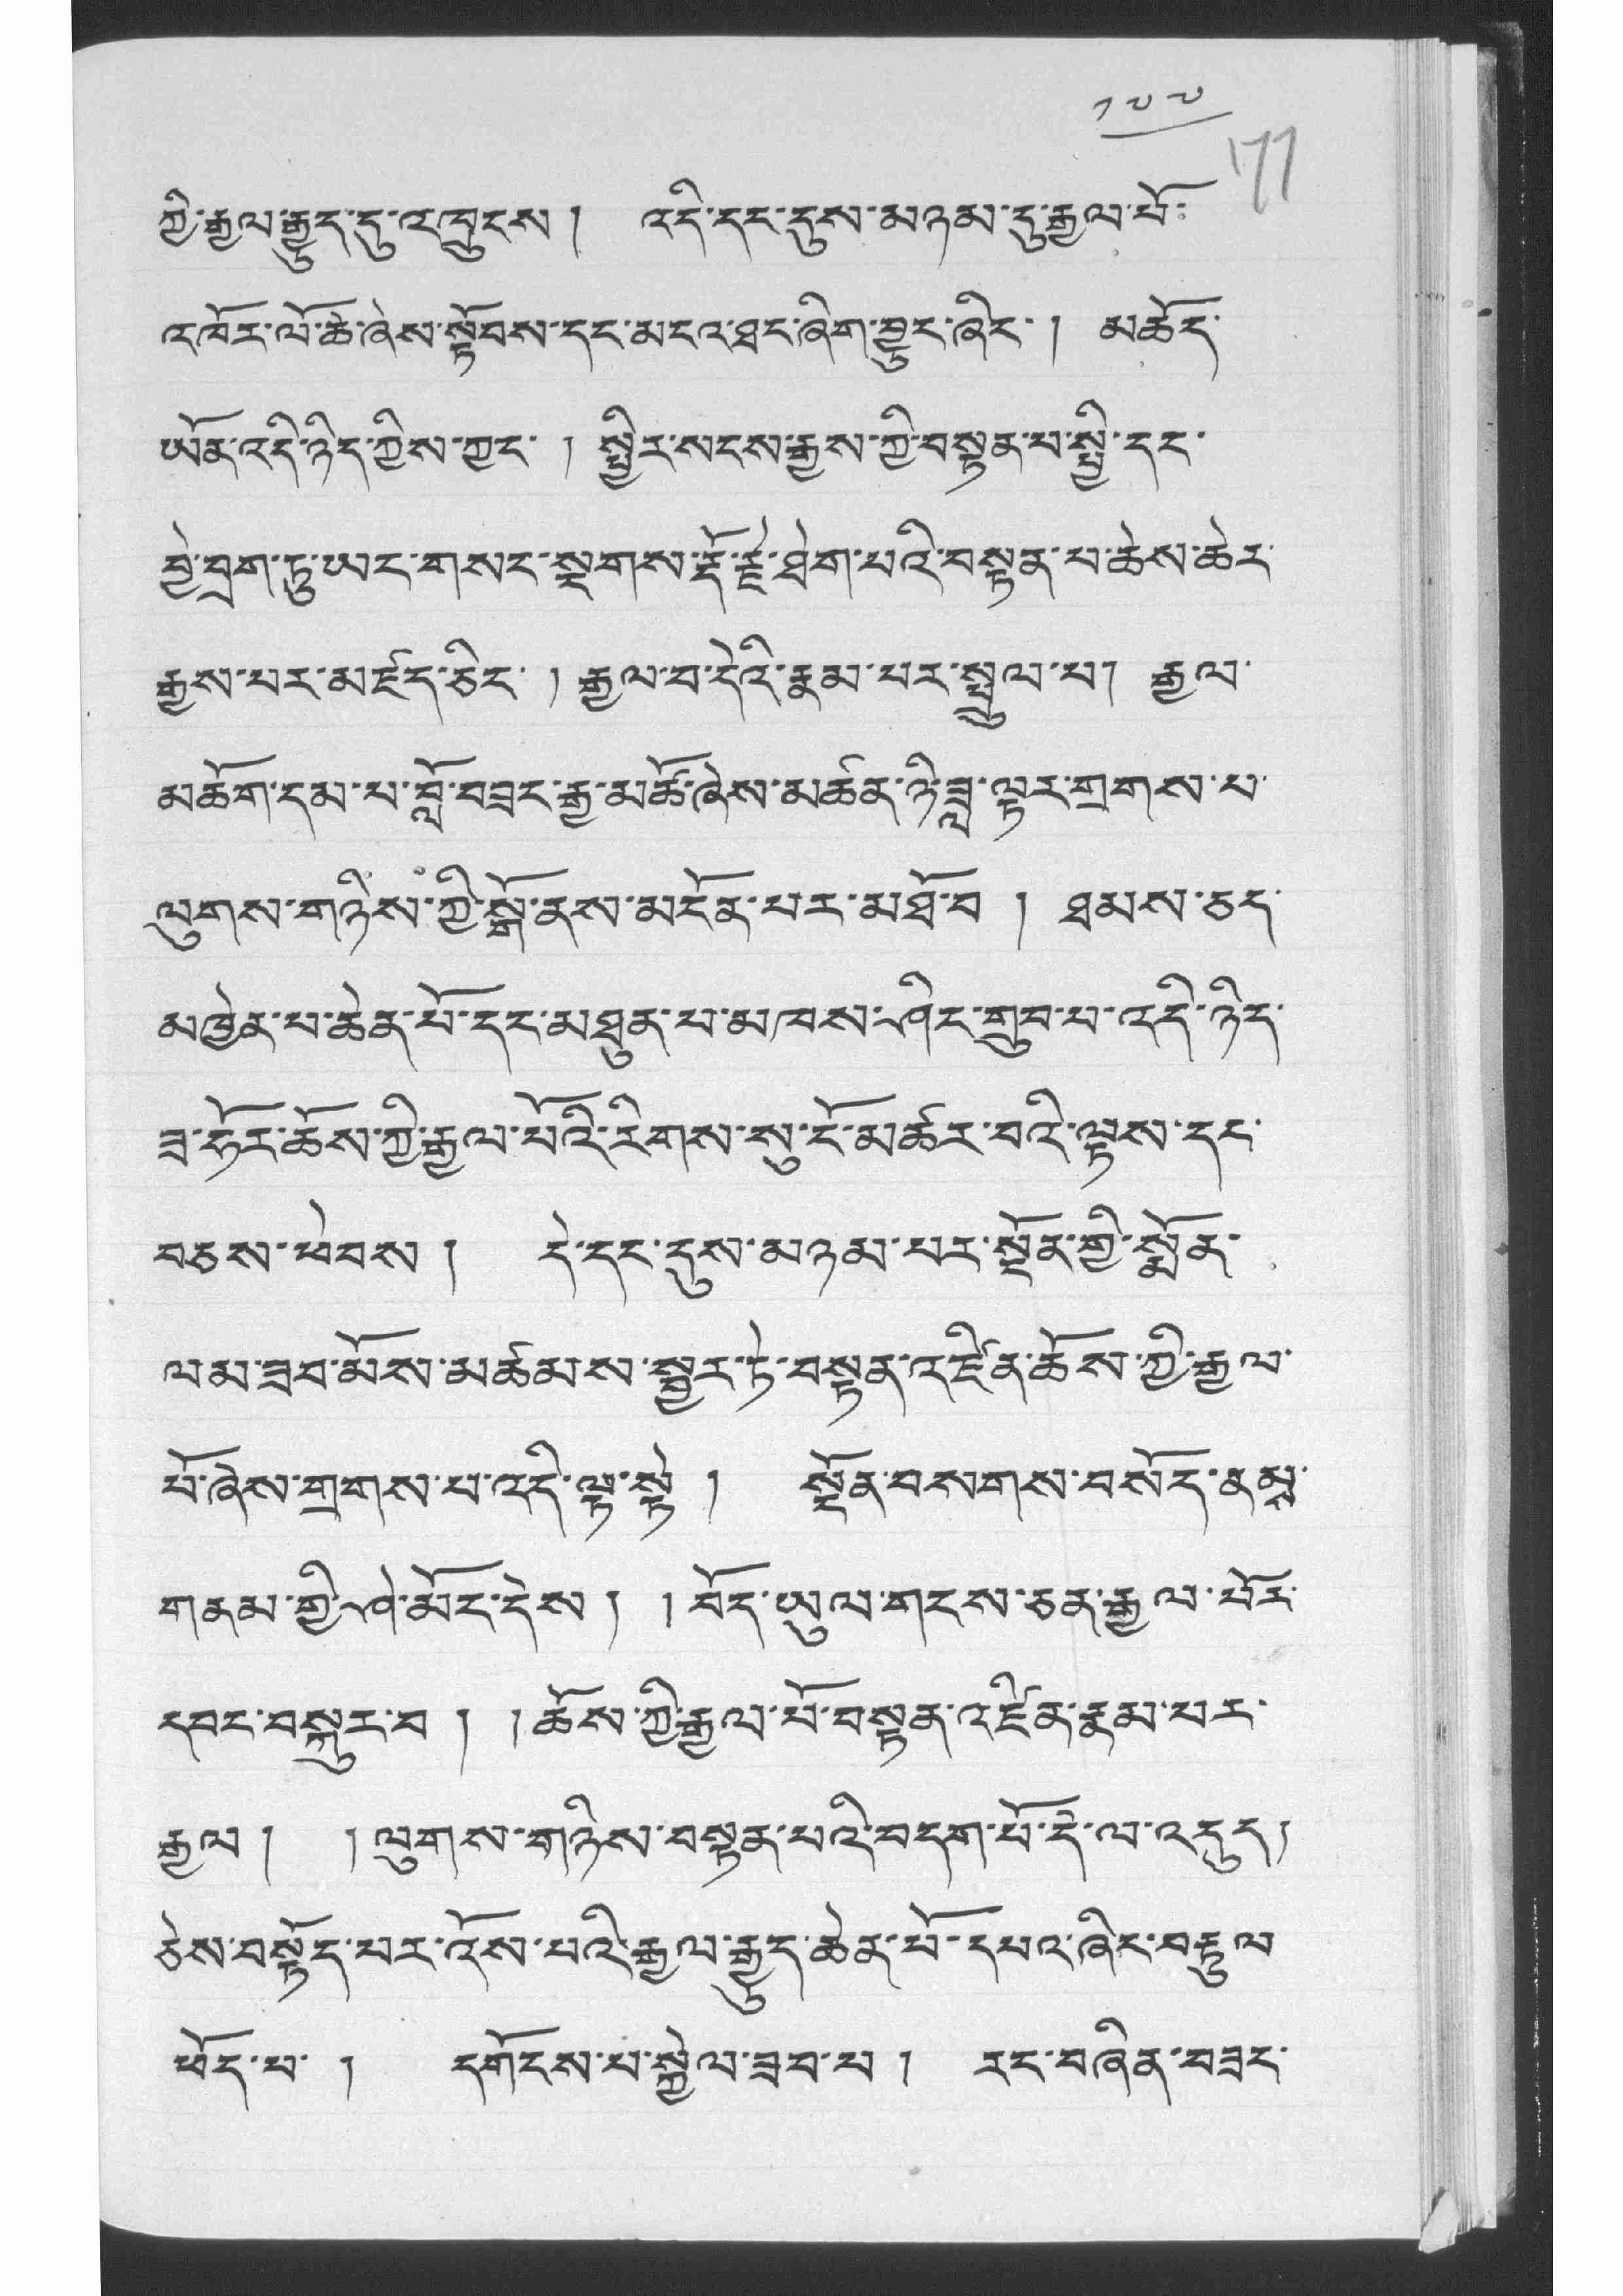 ༡༧༧
177
ཀྱི་རྒྱལ་རྒྱུད་དུ་འཁྲུངས། འདི་དང་དུས་མཉམ་དུ་རྒྱལ་པོ་
འཁོར་ལོ་ཆེ་ཞེས་སྟོབས་དང་མངའ་ཐང་ཞིག་བྱུང་ཞིང་། མཆོད་
ཡོན་འདི་ཉིད་ཀྱིས་ཀྱང་། སྤྱིར་སངས་རྒྱས་ཀྱི་བསྟན་པ་སྤྱི་དང་
བྱེ་བྲག་ཏུ་ཡང་གསང་སྔགས་རྡོ་རྗེ་ཐེག་པའི་བསྟན་པ་ཆེས་ཆེར་
རྒྱས་པར་མཛད་ཅིང་། རྒྱལ་བ་དེའི་རྣམ་པར་སྤྲུལ་པ། རྒྱལ་
མཆོག་དམ་པ་བློ་བཟང་རྒྱ་མཚོ་ཞེས་མཚན་ཉི་ཟླ་ལྟར་གྲགས་པ་
ལུགས་གཉིས་ཀྱི་སྒོ་ནས་མངོན་པར་མཐོ་བ། ཐམས་ཅད་
མཁྱེན་པ་ཆེན་པོ་དང་མཐུན་པ་མཁས་ཤིང་གྲུབ་པ་འདི་ཉིད་
ཟ་ཧོར་ཆོས་ཀྱི་རྒྱལ་པོའི་རིགས་སུ་ངོ་མཚར་བའི་ལྟས་དང་
བཅས་ཕེབས། དེ་དང་དུས་མཉམ་པར་སྔོན་གྱི་སྨོན་
ལམ་ཟབ་མོས་མཚམས་སྦྱར་ཏེ་བསྟན་འཛིན་ཆོས་ཀྱི་རྒྱལ་
པོ་ཞེས་གྲགས་པ་འདི་ལྟ་སྟེ། སྔོན་བསགས་བསོད་ནམས་
གནམ་གྱི་ཤེ་མོང་དེས། །བོད་ཡུལ་གངས་ཅན་རྒྱལ་པོར་
དབང་བསྐུར་བ། །ཆོས་ཀྱི་རྒྱལ་པོ་བསྟན་འཛིན་རྣམ་པར་
རྒྱལ། །ལུགས་གཉིས་བསྟན་པའི་བདག་པོ་དེ་ལ་འདུད།
ཅེས་བསྟོད་པར་འོས་པའི་རྒྱལ་རྒྱུད་ཆེན་པོ་དཔའ་ཞིང་བརྟུལ་
ཕོད་པ་། དགོངས་པ་སྐྱེལ་ཟབ་པ། རང་བཞིན་བཟང་